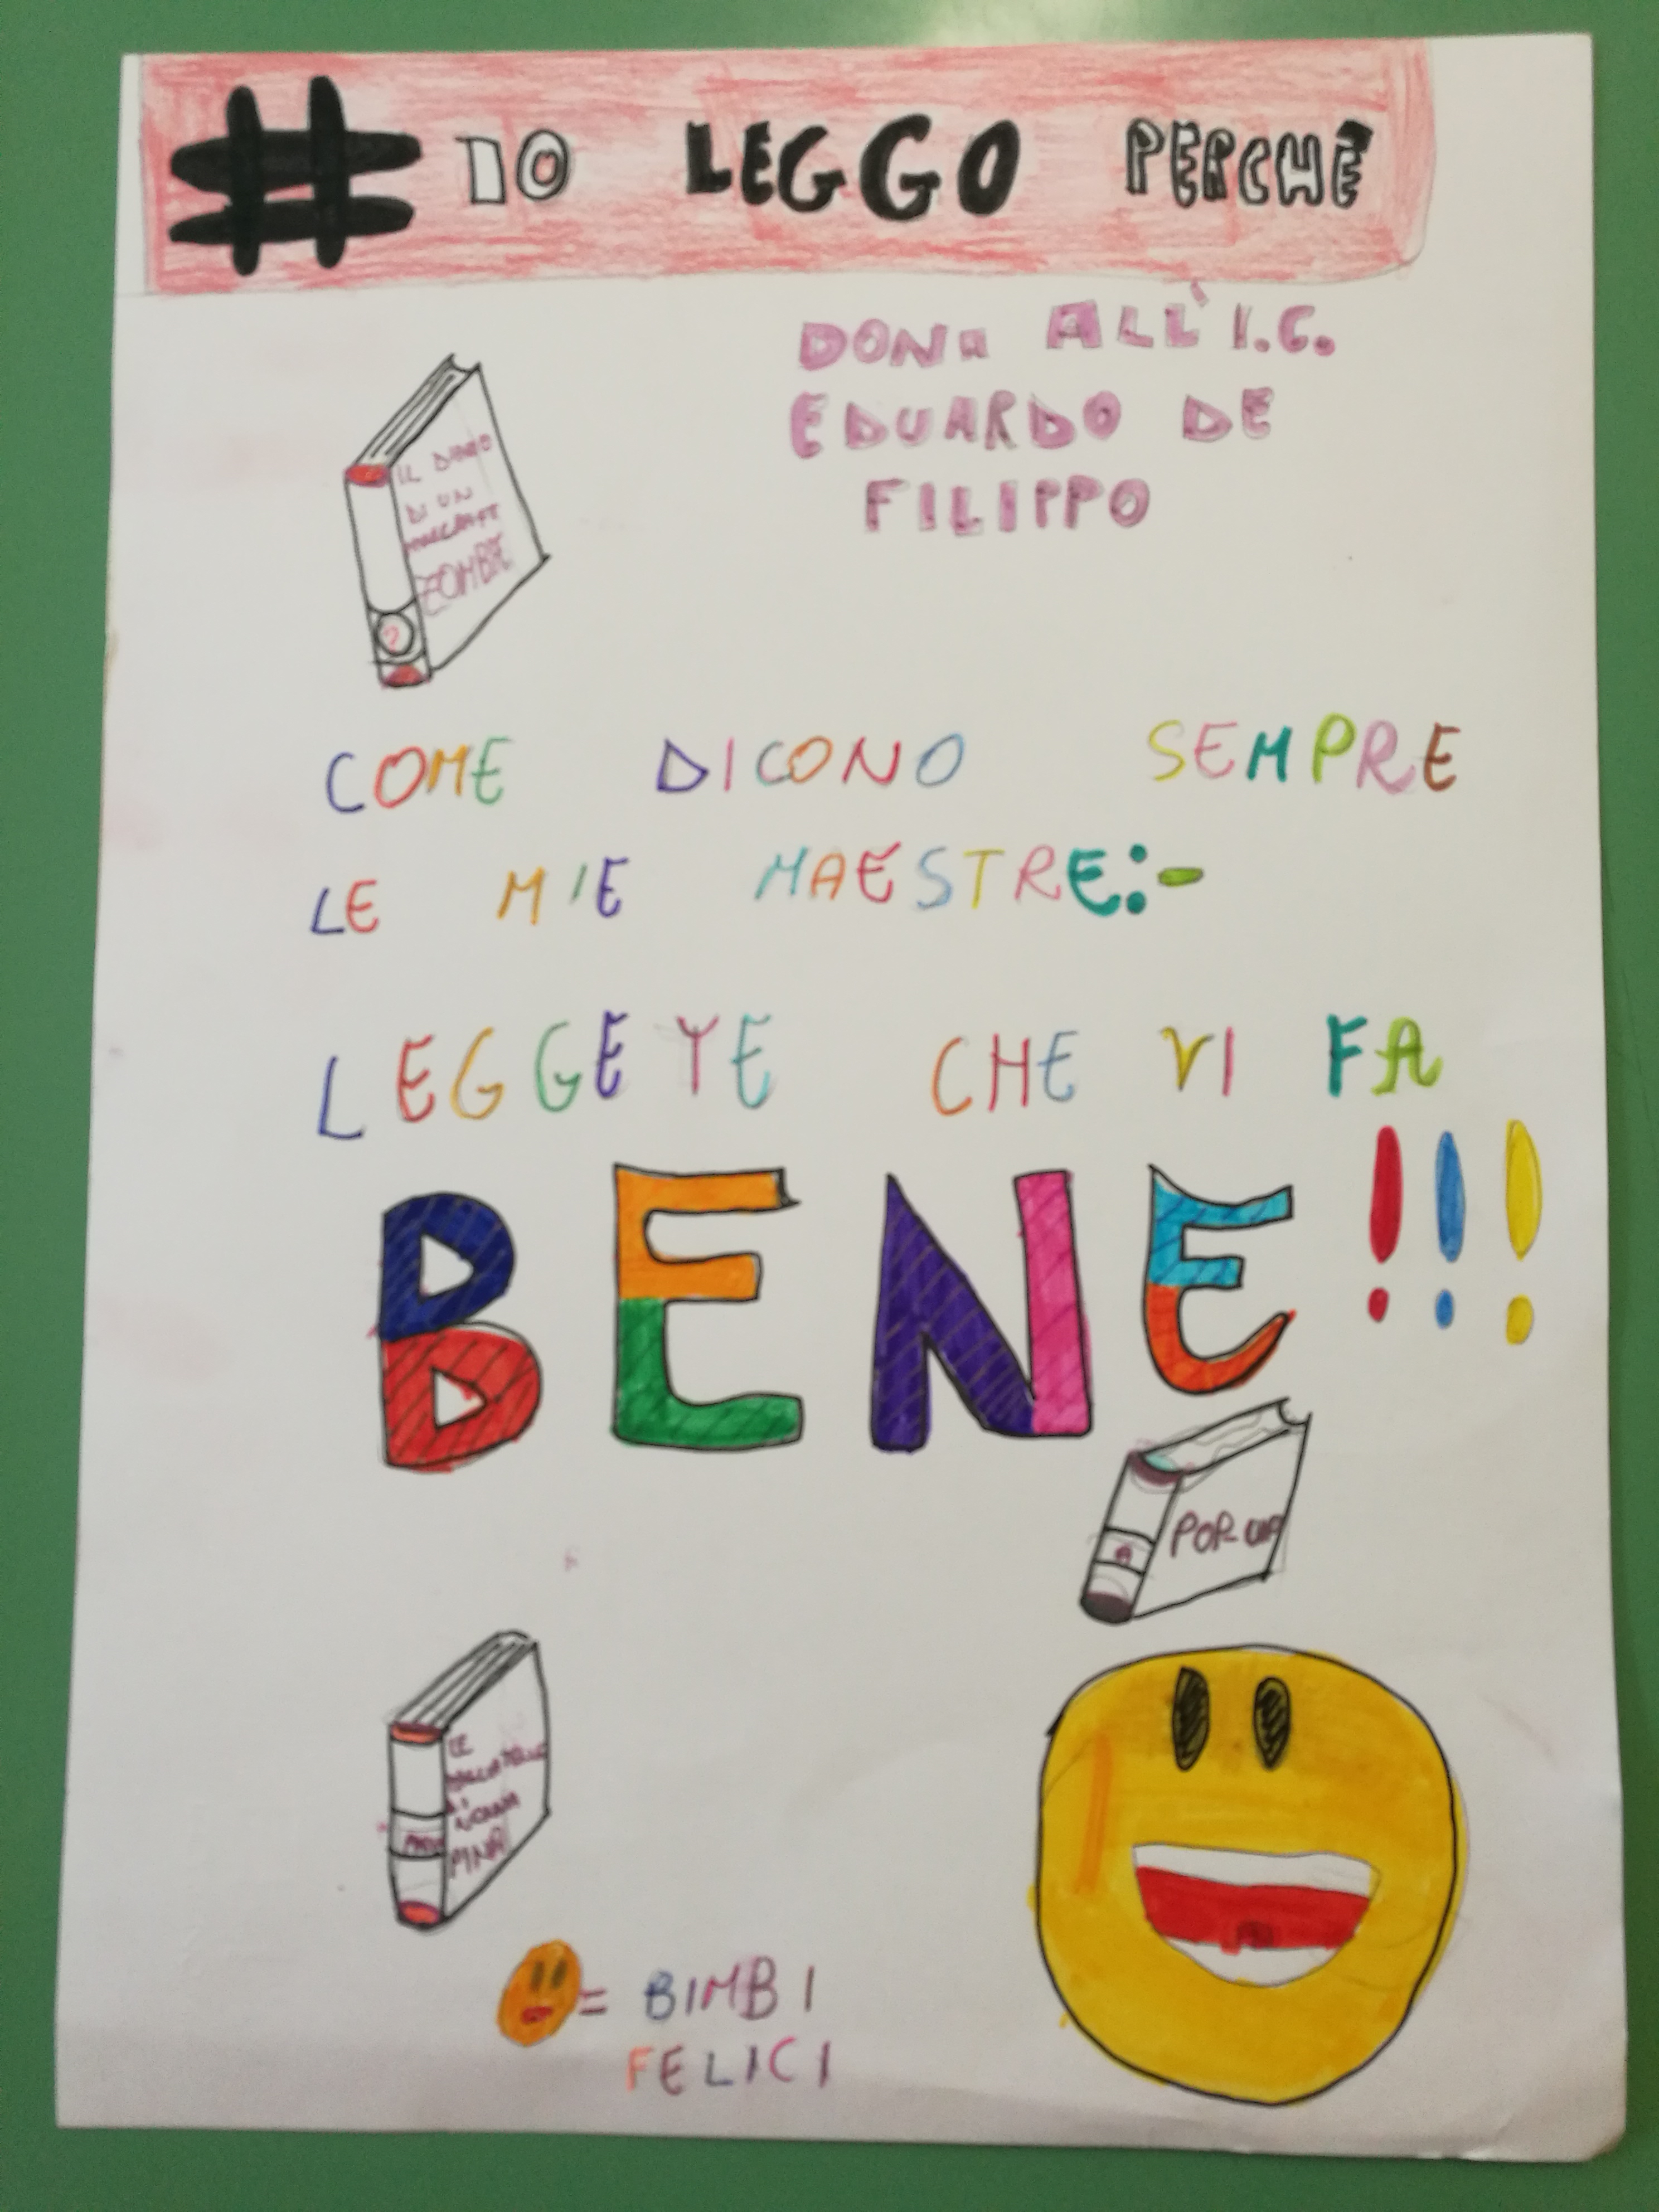 # IO LEGGO PERCHÈ
DONA ALL'I.C.
EDUARDO DE
FILIPPO
IL DIARIO
DI UN
MINECRAFT
ZOMBIE
COME DICONO SEMPRE
LE MIE MAESTRE:-
LEGGETE CHE VI FA
BENE!!!
POP-UP
LE
DI
PINA
= BIMBI
FELICI